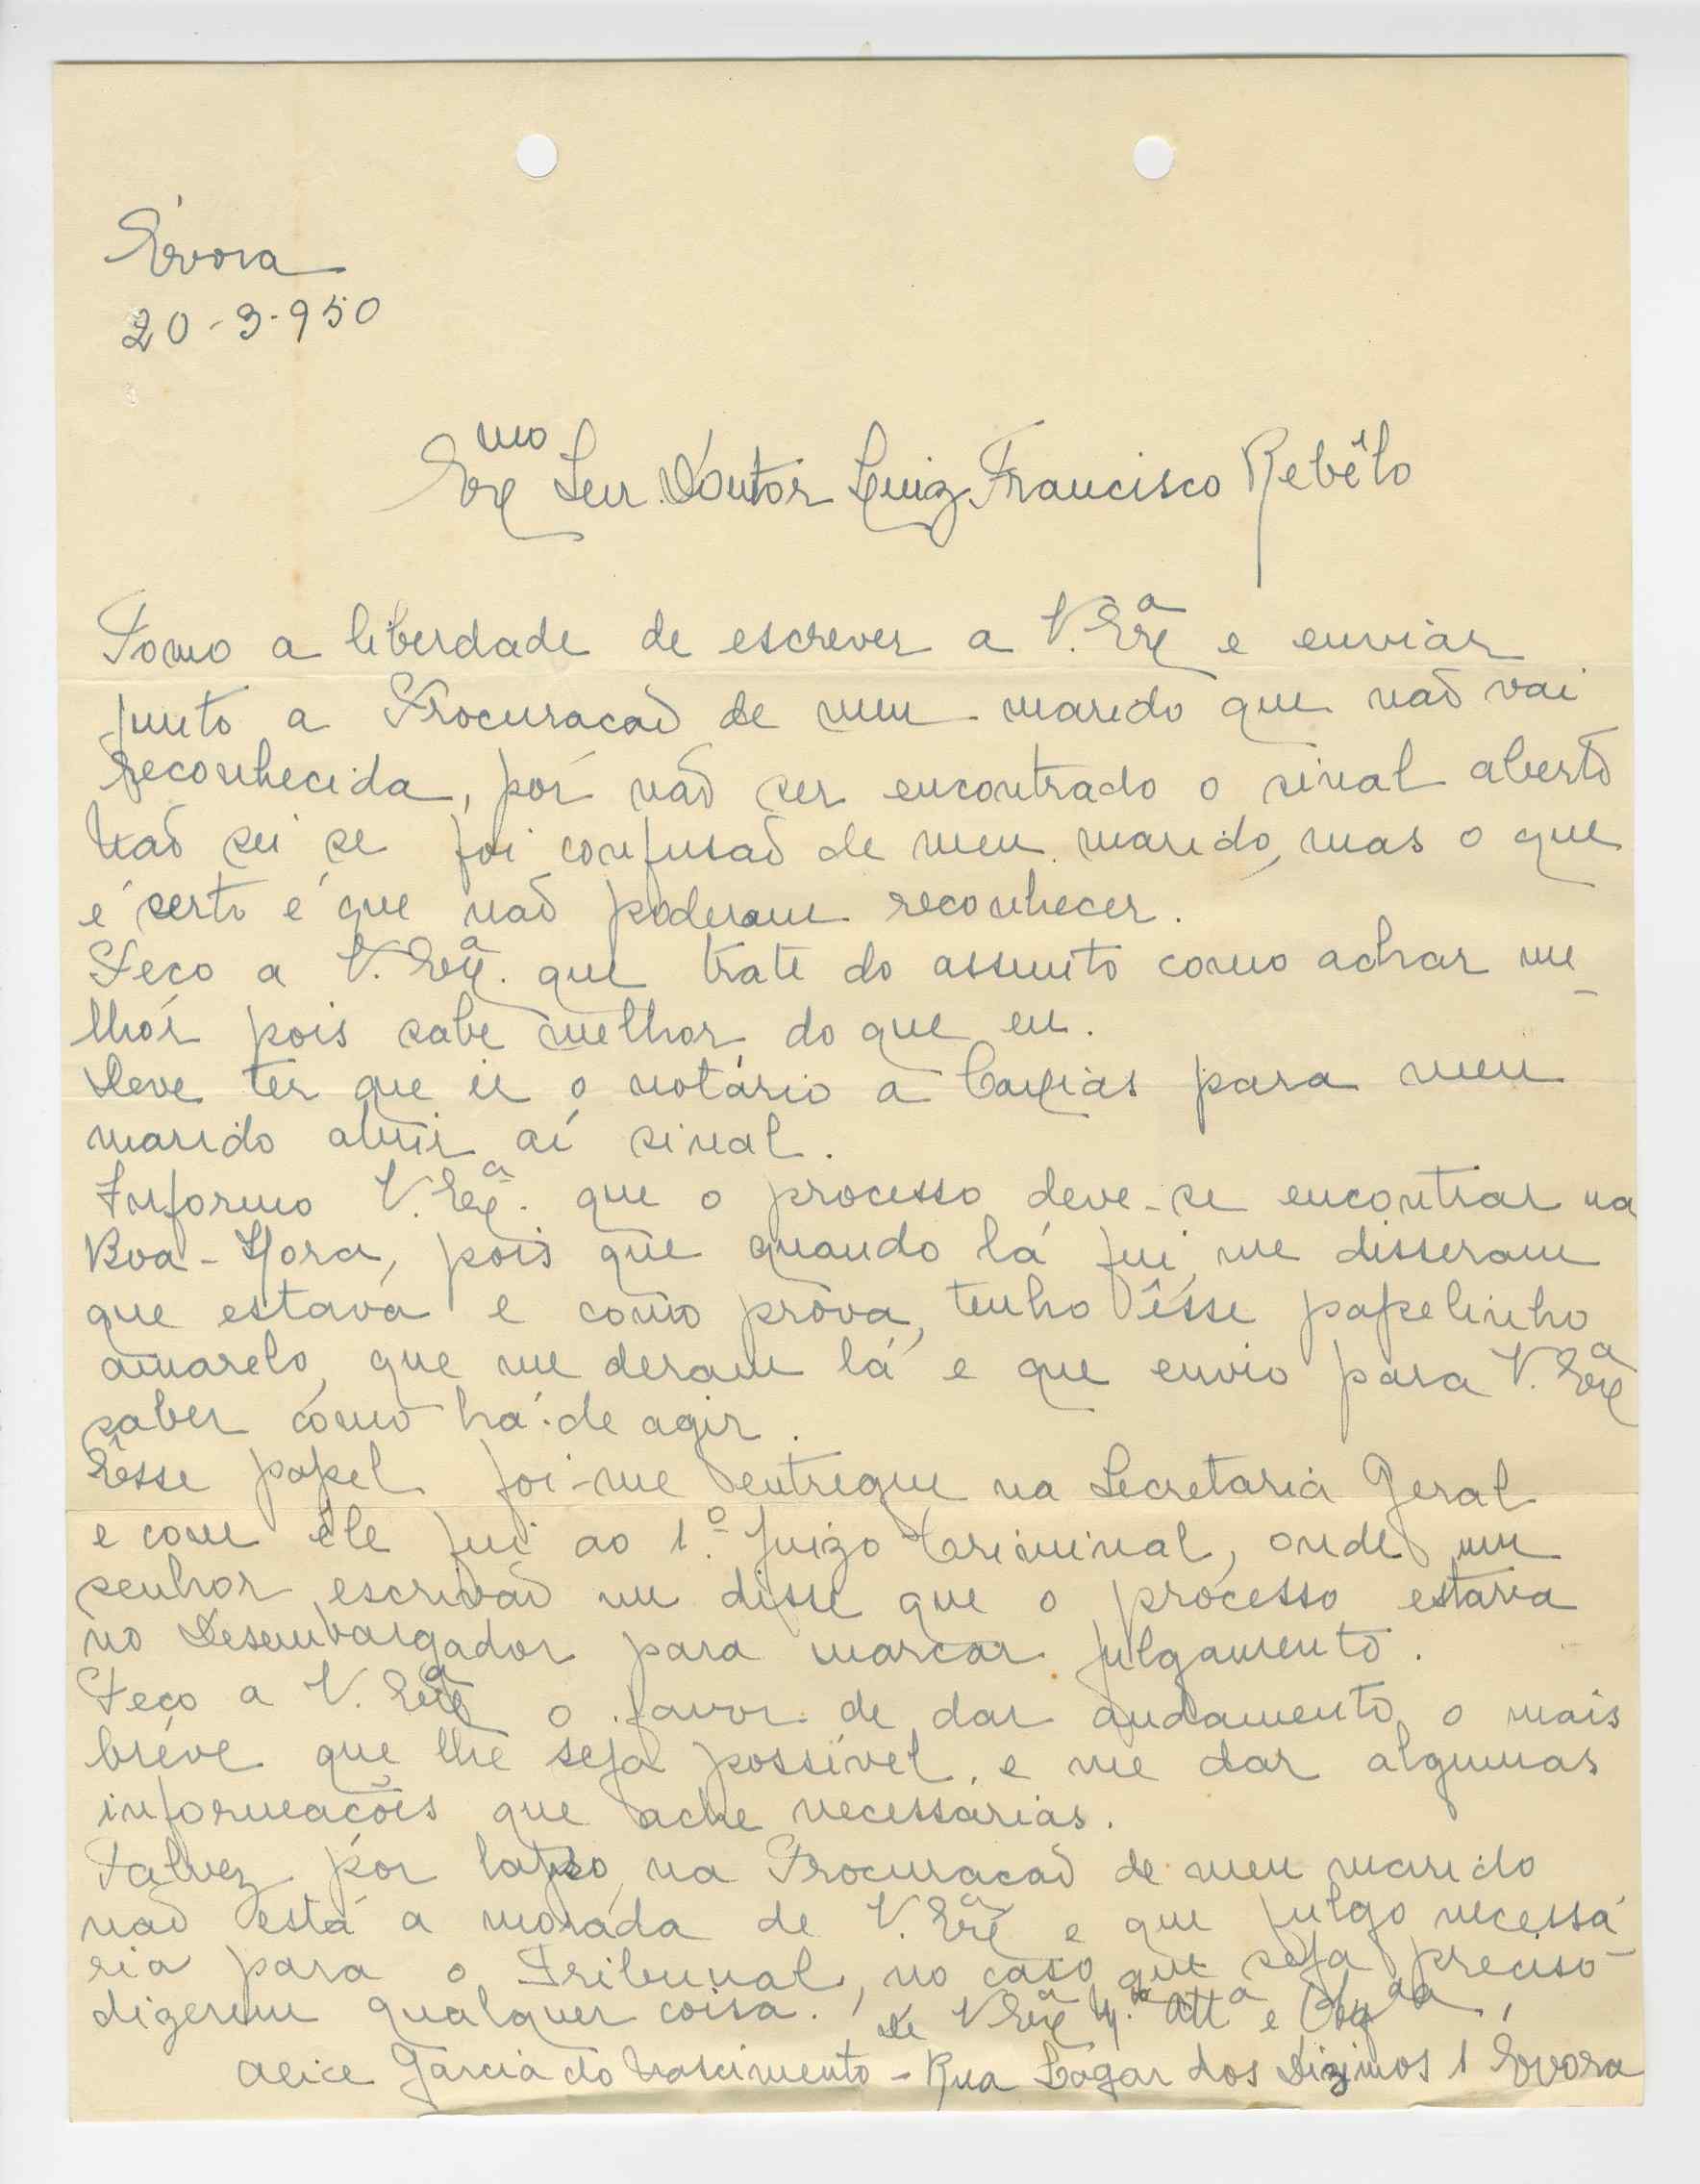 Évora
20-3-950
Exmo Senr. Doutor Luiz Francisco Rebêlo
Tomo a liberdade de escrever a V. Exa e enviar
junto a Procuracaõ de meu marido que naõ vai
reconhecida, pór naõ ser encontrado o sinal aberto
Naõ sei se foi confusaõ de meu marido, mas o que
é serto é que naõ poderam reconhecer.
Peco a V. Exa. que trate do assunto como achar me-
lhór pois sabe melhor do que eu.
Deve ter que ir o notário a Caxias para meu
marido abrir aí sinal.
Informo V. Exa. que o processo deve-se encontrar na
Boa-Hora, pois que quando lá fui, me disseram
que estava e como prova, tenho êsse papelinho
amarelo, que me deram lá e que envio para V. Exa
saber como há-de agir.
Êsse papel foi-me entregue na Secretaria Geral
e com êle fui ao 1.º Juizo Criminal, onde um
senhor escrivaõ me disse que o processo estava
no Desembargador para marcar julgamento.
Peço a V. Exa o favor de dar andamento o mais
bréve que lhe seja possível, e me dar algumas
informacões que ache necessárias.
Talvez pór lapso, na Procuracaõ de meu marido
naõ está a moráda de V. Exa e que julgo necessá-
ria para o Tribunal, no caso que seja preciso
dizerem qualquer coisa. De V Exa M.to Atta e Obgda,
Alice Garcia do Nascimento - Rua Lagar dos Dizimos 1 Évora